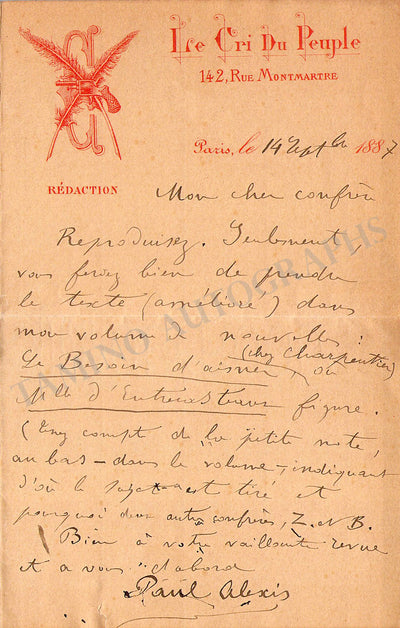 Le Cri Du Peuple
142, Rue Montmartre
Paris, le 14 Sept bre 1887
RÉDACTION
Mon cher confrère
Reproduisez. Seulement
vous feriez bien de prendre
le texte (amélioré) dans
mon volume de nouvelles :
(chez Charpentier)
Le Besoin d'aimer, où
Mlle d'Entrecasteaux figure.
(Tenez compte de la petite note,
au bas - dans le volume -, indiquant
d'où le sujet est tiré et
pourquoi deux autres confrères, Z. et B.
Bien à votre vaillante revue
et à vous d'abord
Paul Alexis
TAMINO AUTOGRAPHS